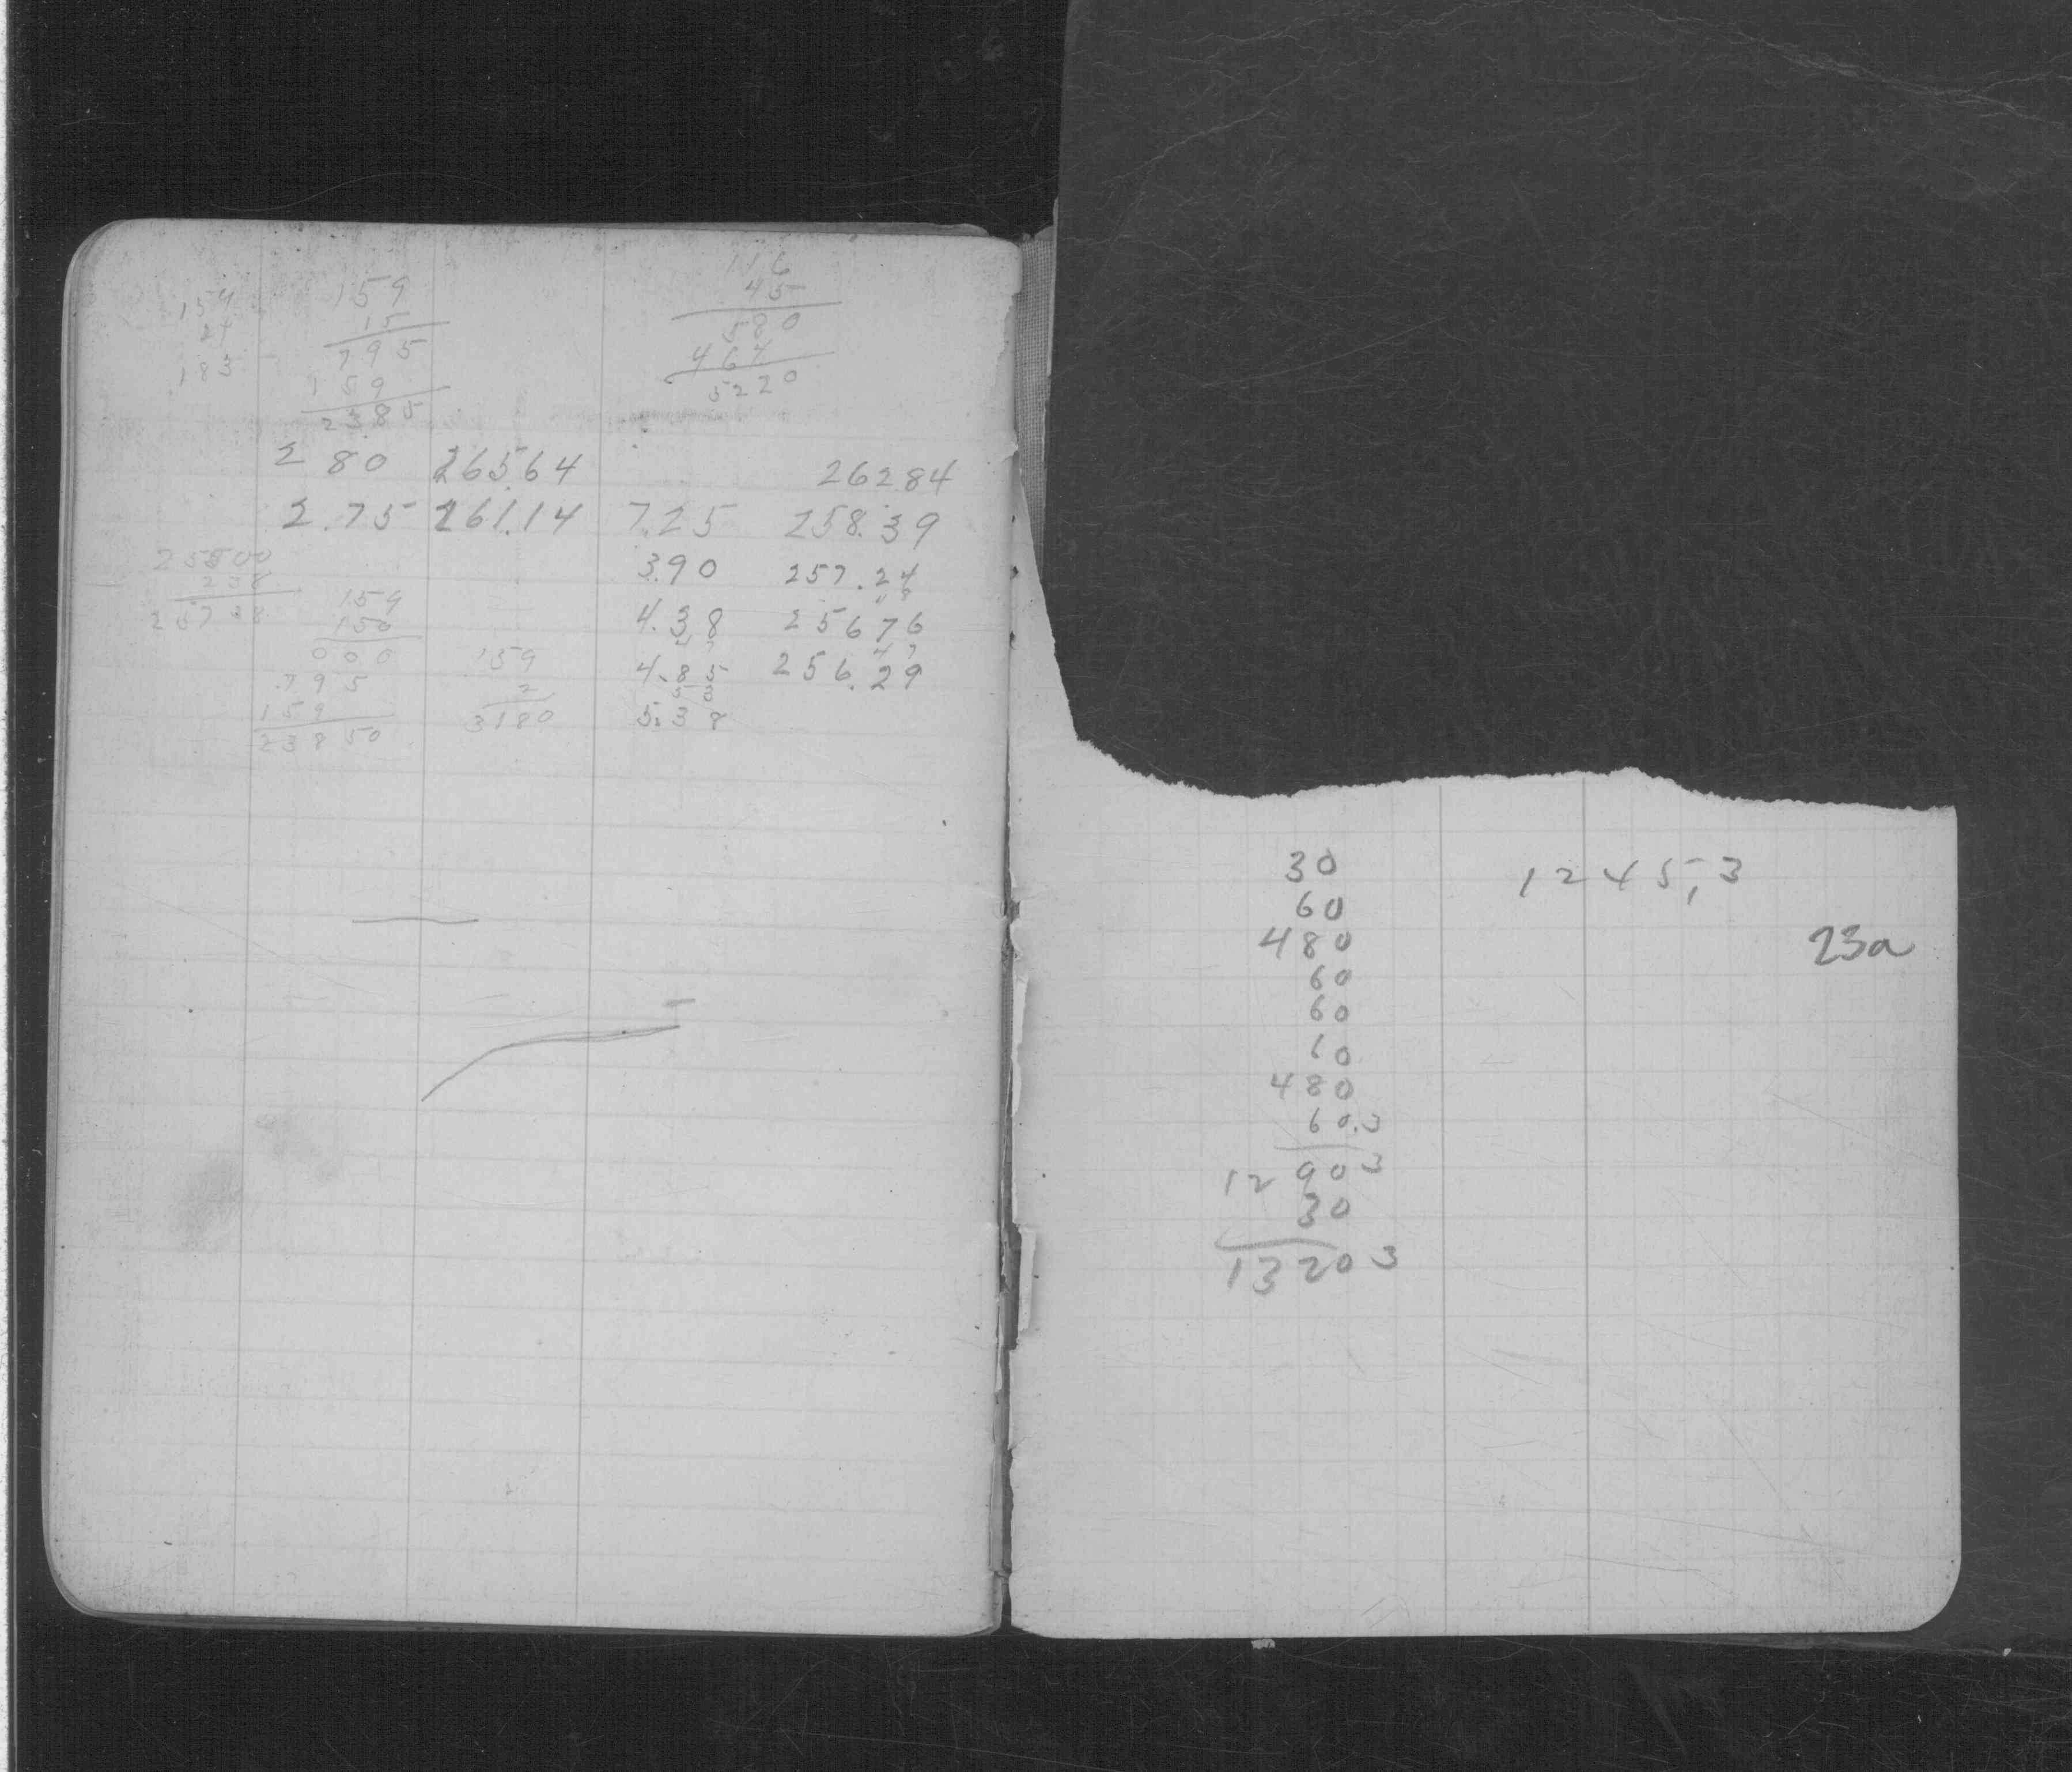 159
15
795
159
2385
116
45
580
464
5220
2 80 26564 26284
2.75 261.14 7.25 258.39
3.90 257.24
4.38 25676
4.85 256.29
5.38
159
150
000
795
159
23850
159
2
3180
30
60
480
60
60
60
480
60.3
1290 3
30
1320 3
1245,3
23a